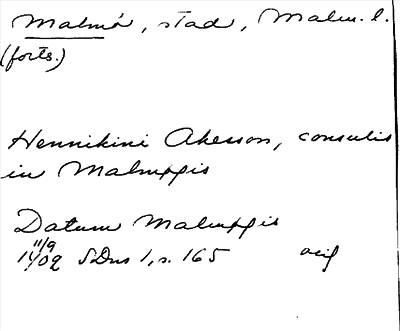 Malmö, stad, Malm. l.
(forts.)
Hennikini Akesson, consulis
in Malmøgis
Datum Malmøgis
11/9
1409 SDns 1, s. 165